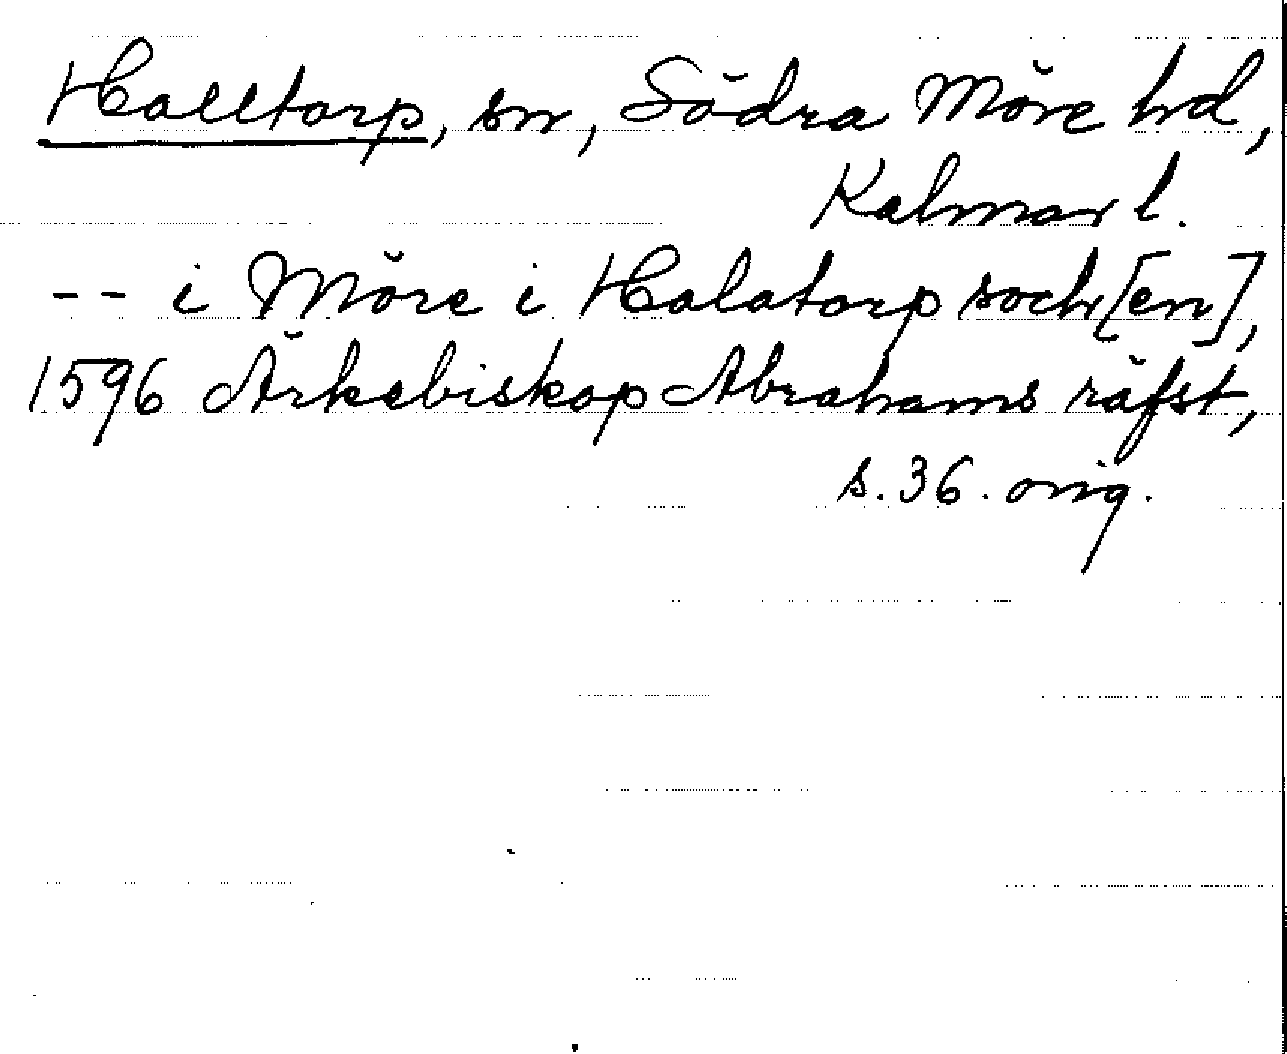 Halltorp, sn, Södra Möre hd,
Kalmar l.
-- i Möre i Halatorp soch[en],
1596 Ärkebiskop Abrahams räfst,
s. 36. orig.